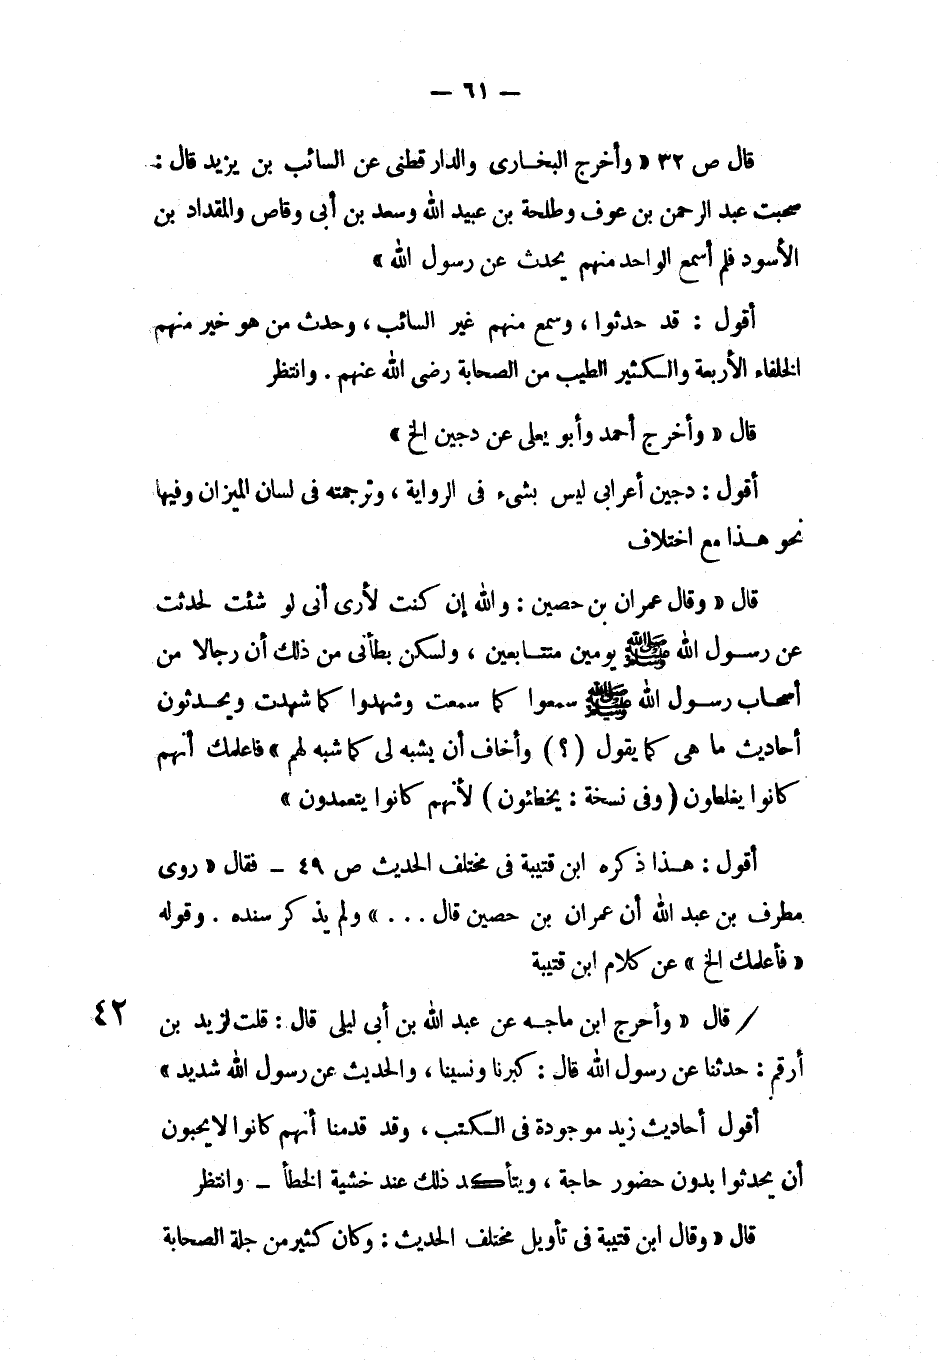 — ٦١ —
قال ص ٣٢ « وأخرج البخارى والدارقطنى عن السائب بن يزيد قال :
صحبت عبد الرحمن بن عوف وطلحة بن عبيد الله وسعد بن أبى وقاص والمقداد بن
الأسود فلم أسمع الواحد منهم يحدث عن رسول الله »
أقول : قد حدثوا ، وسمع منهم غير السائب ، وحدث من هو خير منهم
الخلفاء الأربعة والكثير الطيب من الصحابة رضى الله عنهم . وانتظر
قال « وأخرج أحمد وأبو يعلى عن دجين الخ »
أقول : دجين أعرابى ليس بشىء فى الرواية ، وترجمته فى لسان الميزان وفيها
نحو هذا مع اختلاف
قال « وقال عمران بن حصين : والله إن كنت لأرى أنى لو شئت لحدثت
عن رسول الله ﷺ يومين متتابعين ، ولكن بطأنى من ذلك أن رجالا من
أصحاب رسول الله ﷺ سمعوا كما سمعت وشهدوا كما شهدت ويحدثون
أحاديث ما هى كما يقول (؟) وأخاف أن يشبه لى كما شبه لهم » فاعلمك أنهم
كانوا يغلطون ( وفى نسخة : يخطئون ) لأنهم كانوا يتعمدون »
أقول : هذا ذكره ابن قتيبة فى مختلف الحديث ص ٤٩ – فقال « روى
مطرف بن عبد الله أن عمران بن حصين قال . . . » ولم يذكر سنده . وقوله
« فأعلمك الخ » عن كلام ابن قتيبة
/ قال « وأحرج ابن ماجه عن عبد الله بن أبى ليلى قال : قلت لزيد بن ٤٢
أرقم : حدثنا عن رسول الله قال : كبرنا ونسينا ، والحديث عن رسول الله شديد »
أقول أحاديث زيد موجودة فى الكتب ، وقد قدمنا أنهم كانوا لا يحبون
أن يحدثوا بدون حضور حاجة ، ويتأكد ذلك عند خشية الخطأ – وانتظر
قال « وقال ابن قتيبة فى تأويل مختلف الحديث : وكان كثير من جلة الصحابة